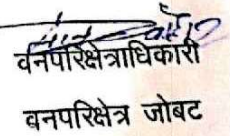 वनपरिक्षेत्राधिकारी
वनपरिक्षेत्र जोबट